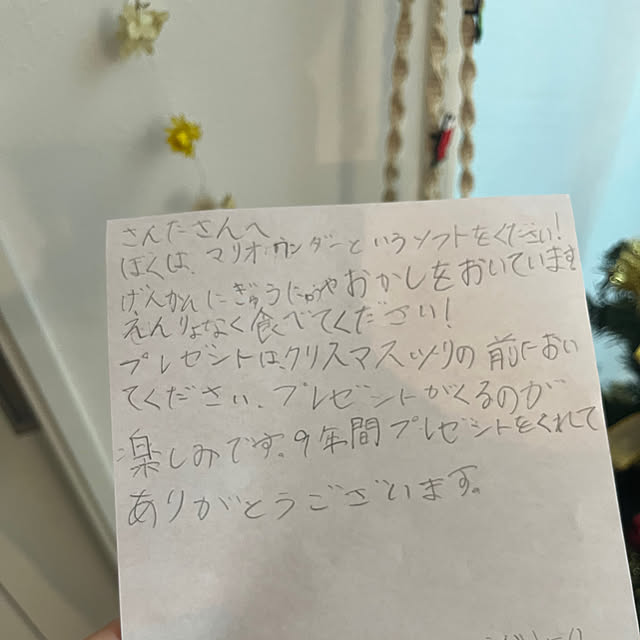 さんたさんへ
ぼくは、マリオ・ワンダーというソフトをください!
げんかんにぎゅうにゅうやおかしをおいています
えんりょなく食べてください!
プレゼントはクリスマスツリの前におい
てください、プレゼントがくるのが
楽しみです。9年間プレゼントをくれて
ありがとうございます。